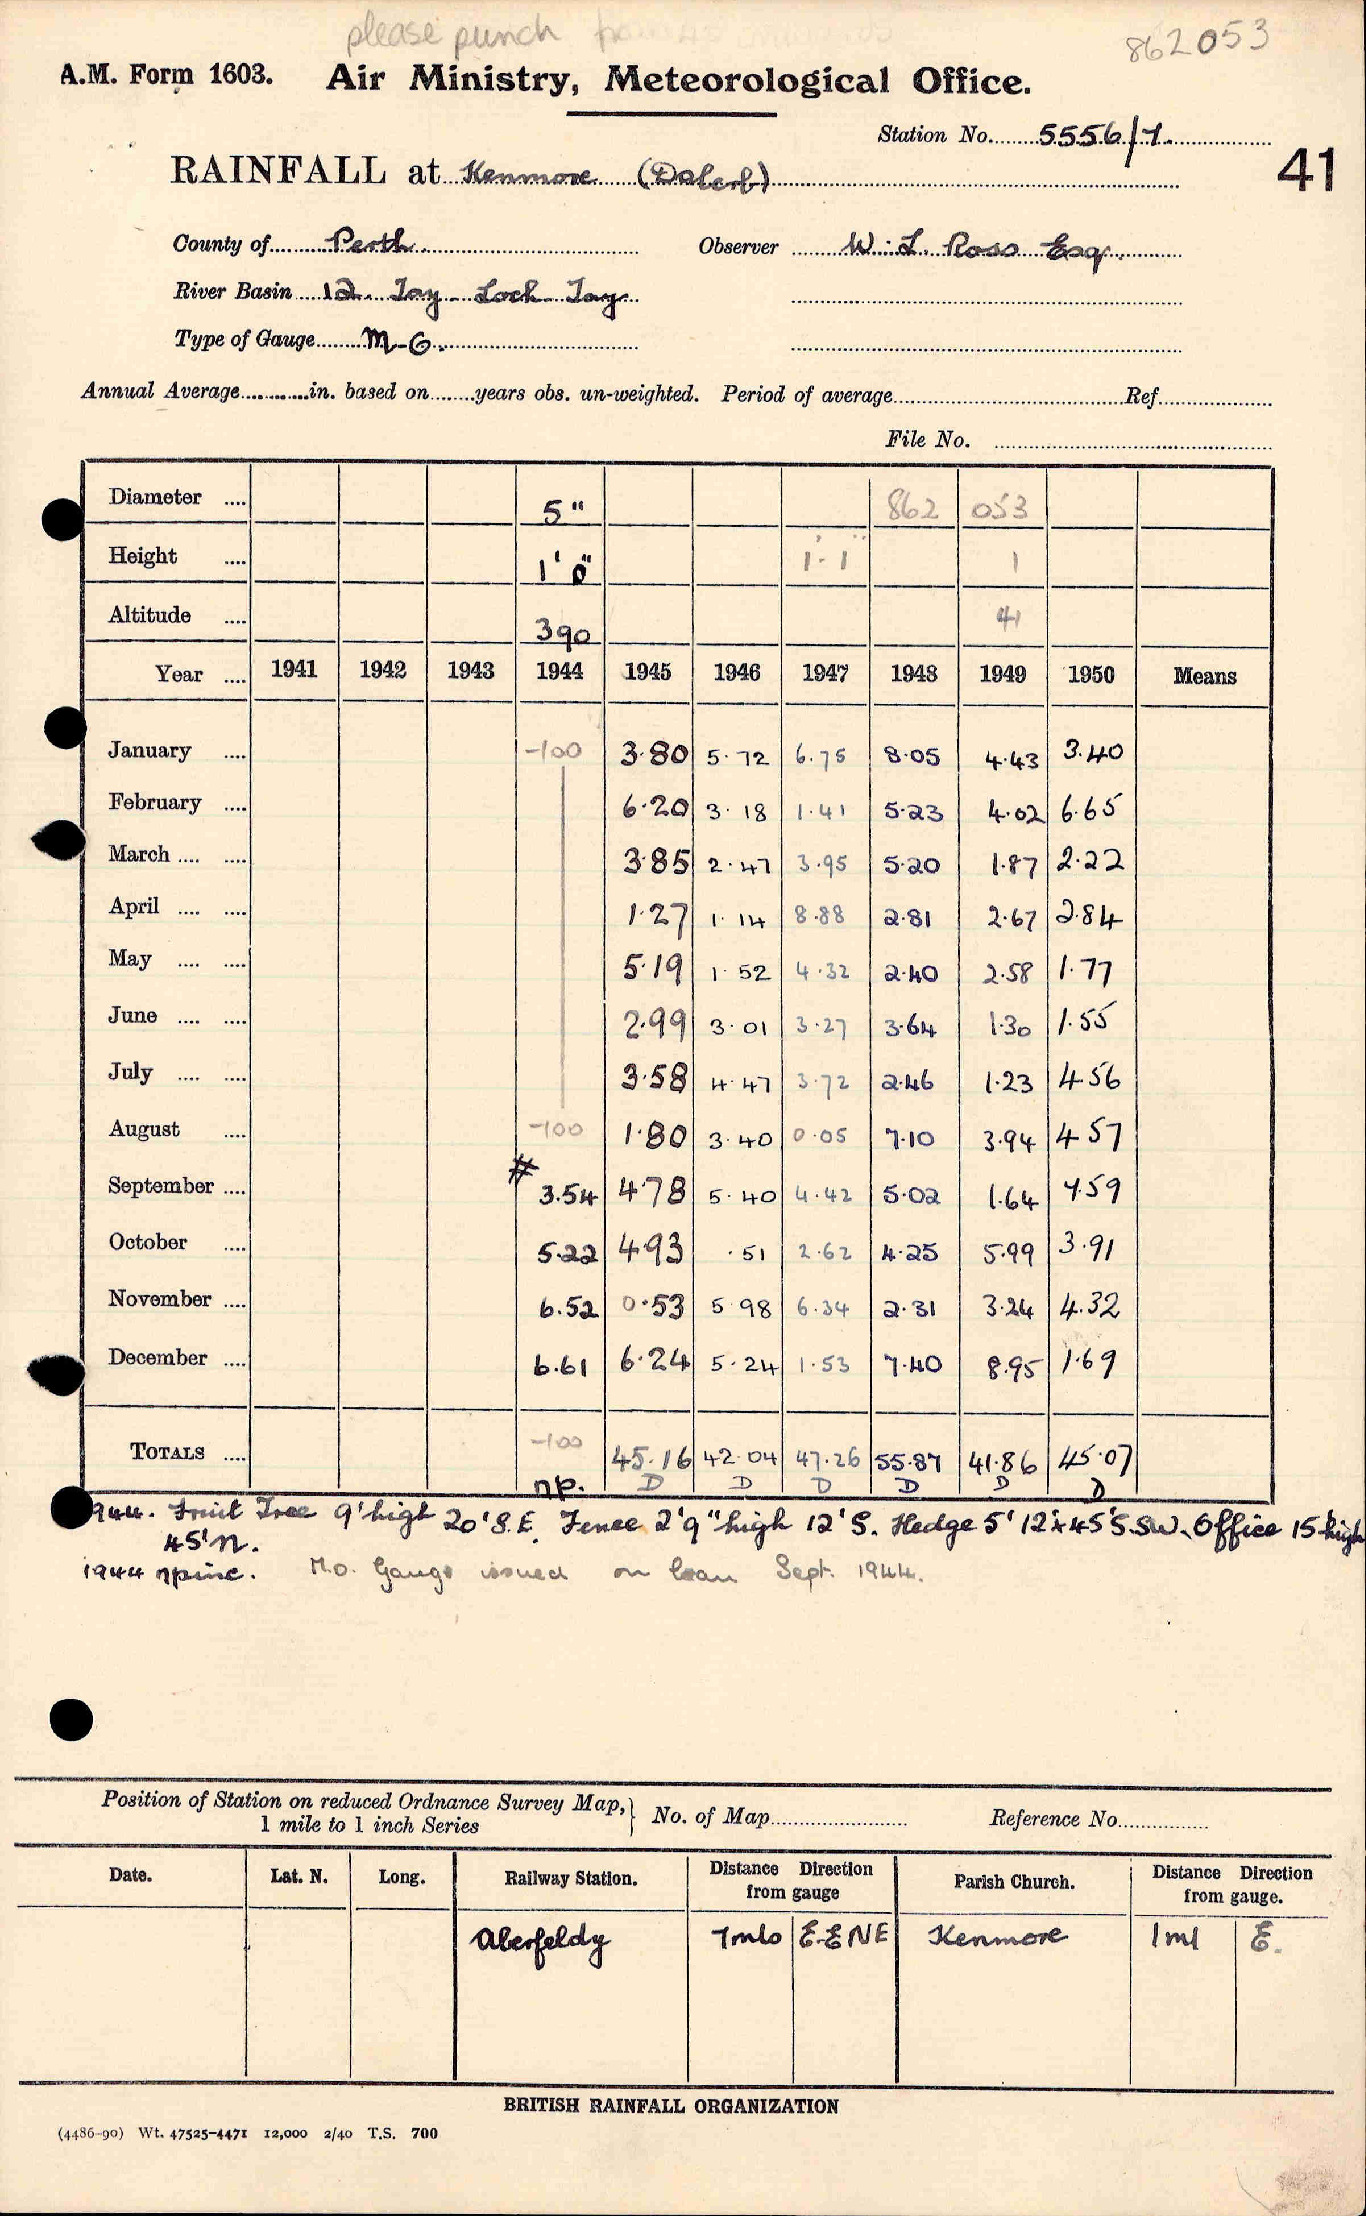 please punch
862053
A.M. Form 1603. Air Ministry, Meteorological Office.
Station No. 5556/7.
41
RAINFALL at Kenmore (Dalerb)
County of Perth Observer W. L. Ross Esq.
River Basin 12. Tay - Loch Tay
Type of Gauge M-O.
Annual Average in. based on years obs. un-weighted. Period of average Ref.
File No.
Diameter 5" 862 053
Height 1' 0" 1'-1" 1
Altitude 390 41
Year 1941 1942 1943 1944 1945 1946 1947 1948 1949 1950 Means
January -100 3.80 5.72 6.75 8.05 4.43 3.40
February 6.20 3.18 1.41 5.23 4.02 6.65
March 3.85 2.47 3.95 5.20 1.87 2.22
April 1.27 1.14 8.88 2.81 2.67 2.84
May 5.19 1.52 4.32 2.40 2.58 1.77
June 2.99 3.01 3.27 3.64 1.30 1.55
July 3.58 4.47 3.72 2.46 1.23 4.56
August -100 1.80 3.40 0.05 7.10 3.94 4.57
September # 3.54 4.78 5.40 4.42 5.02 1.64 7.59
October 5.22 4.93 .51 2.62 4.25 5.99 3.91
November 6.52 0.53 5.98 6.34 2.31 3.24 4.32
December 6.61 6.24 5.24 1.53 7.40 8.95 1.69
TOTALS -100 45.16 42.04 47.26 55.87 41.86 45.07
np. D D D D D D
1944. Fruit Tree 9' high 20' S.E. Fence 2'9" high 12' S. Hedge 5' 12' x 45' S.SW. Office 15' high
45' N.
1944 npinc. M.O. Gauge issued on loan Sept. 1944.
Position of Station on reduced Ordnance Survey Map, 1 mile to 1 inch Series } No. of Map Reference No.
Date. Lat. N. Long. Railway Station. Distance Direction from gauge Parish Church. Distance Direction from gauge.
Aberfeldy 7mls E-ENE Kenmore 1ml E.
BRITISH RAINFALL ORGANIZATION
(4486-90) Wt. 47525-4471 12,000 2/40 T.S. 700